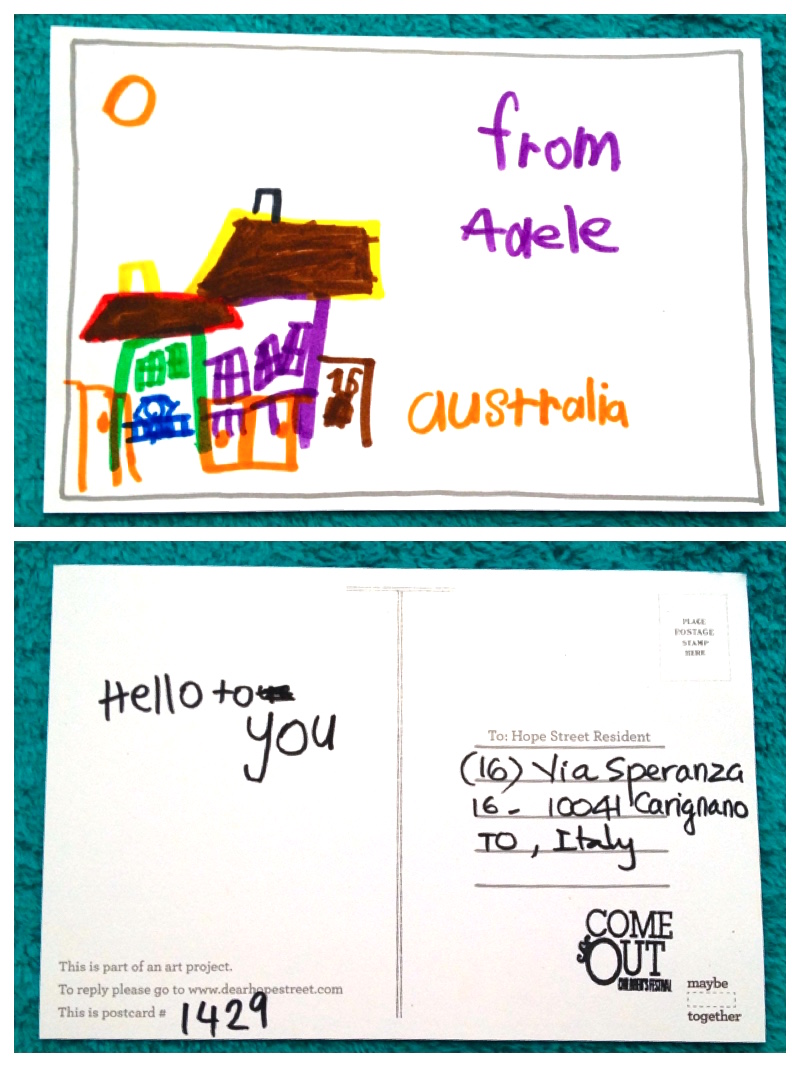 from
Adele
16
australia
Hello to
you
PLACE
POSTAGE
STAMP
HERE
To: Hope Street Resident
(16) Via Speranza
16 - 10041 Carignano
TO, Italy
COME
OUT
CHILDREN'S FESTIVAL
This is part of an art project.
To reply please go to www.dearhopestreet.com
This is postcard # 1429
maybe
together